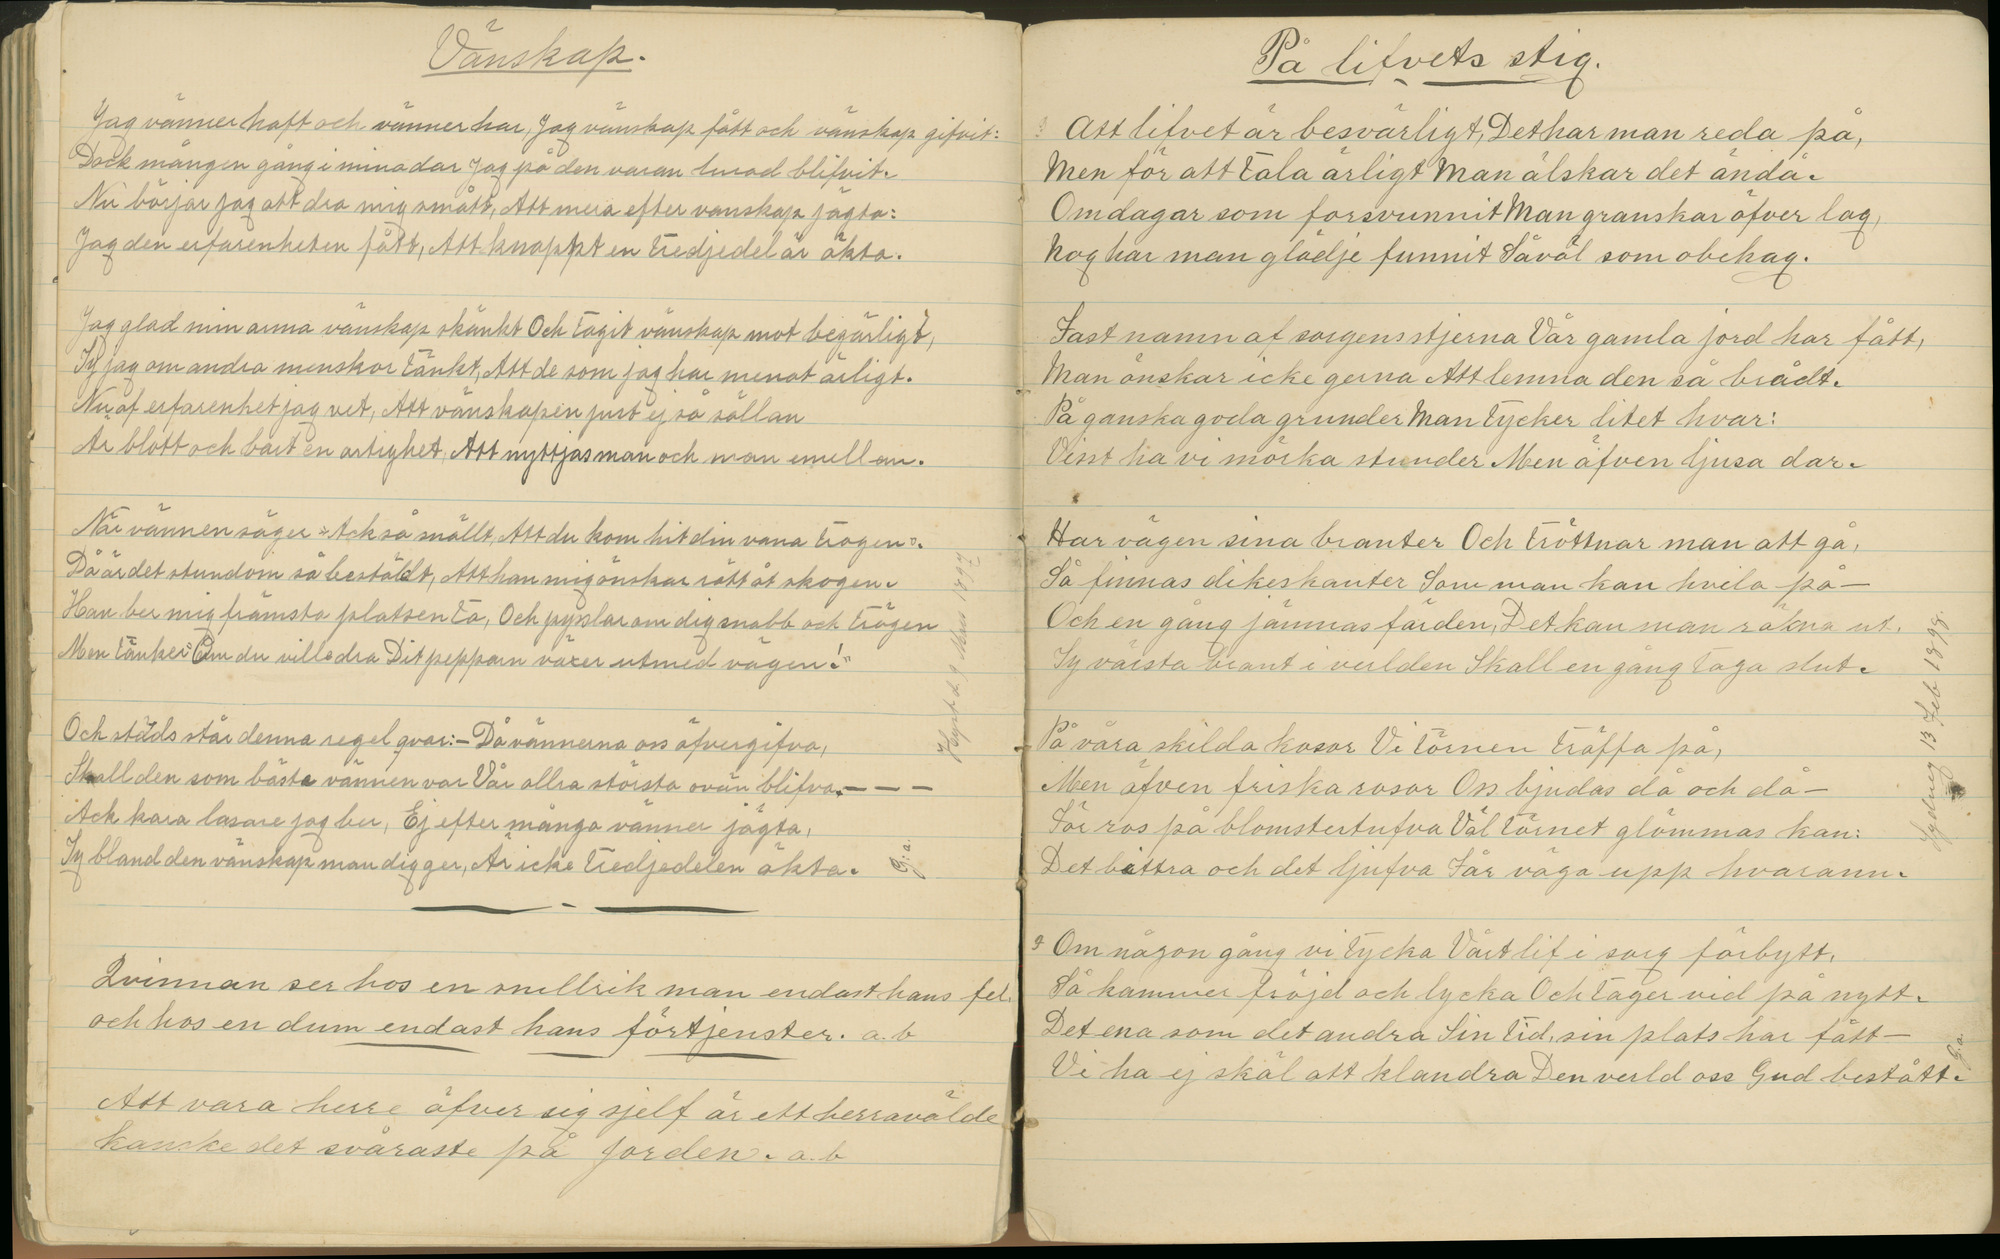 Vänskap.
Jag vänner haft och vänner har, Jag vänskap fått och vänskap gifvit:
Dock mången gång i mina dar Jag på den varan lurad blifvit.
Nu börjar jag att dra mig smått, Att mera efter vänskap jägta:
Jag den erfarenheten fått, Att knappt en tredjedel är äkta.
Jag glad min arma vänskap skänkt Och tagit vänskap mot begärligt,
Ty jag om andra menskor tänkt, Att de som jag har menat ärligt.
Nu af erfarenhet jag vet, Att vänskapen just ej så sällan
Är blott och bart en artighet, Att nyttjas man och man emellan.
När vännen säger "Ack så snällt, Att du kom hit din vana trogen".
Då är det stundom så bestäldt, Att han mig önskar rätt åt skogen.
Han ber mig främsta platsen ta, Och pysslar om dig snabb och trägen
Men tänker: "Om du ville dra Dit pepparn växer utmed vägen!"
Och städs står denna regel qvar:– Då vännerna oss öfvergifva,
Skall den som bästa vännen var Vår allra största ovän blifva. – – –
Ack kära läsare jag ber, Ej efter många vänner jägta,
Ty bland den vänskap man dig ger, Är icke tredjedelen äkta.
G. a.
Qvinnan ser hos en snillrik man endast hans fel,
och hos en dum endast hans förtjenster. a. b
Att vara herre öfver sig sjelf är ett herravälde
kanske det svåraste på jorden. a. b
På lifvets stig.
Att lifvet är besvärligt, Det har man reda på,
Men för att tala ärligt Man älskar det ändå.
Om dagar som försvunnit Man granskar öfver lag,
Nog har man glädje funnit Såväl som obehag.
Fast namn af sorgens stjerna Vår gamla jord har fått,
Man önskar icke gerna Att lemna den så brådt.
På ganska goda grunder Man tycker litet hvar:
Visst ha vi mörka stunder Men äfven ljusa dar.
Har vägen sina branter Och tröttnar man att gå,
Så finnas dikeskanter Som man kan hvila på –
Och en gång jämnas färden, Det kan man räkna ut,
Ty värsta brant i verlden Skall en gång taga slut.
På våra skilda kosor Vi törnen träffa på,
Men äfven friska rosor Oss bjudas då och då –
För ros på blomstertufva Väl törnet glömmas kan:
Det bittra och det ljufva Får väga upp hvarann.
Om någon gång vi tycka Vårt lif i sorg förbytt,
Så kommer fröjd och lycka Och tager vid på nytt.
Det ena som det andra Sin tid, sin plats har fått –
Vi ha ej skäl att klandra Den verld oss Gud bestått.
13 Feb 1898
G. a.